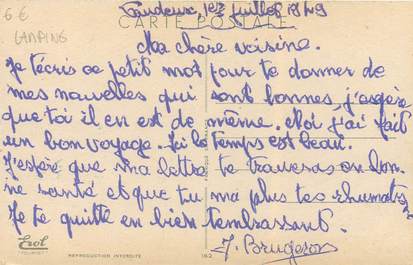 6€
CAMPING
1er juillet 1949
CARTE POSTALE
Ma chère voisine.
Je técris ce petit mot pour te donner de
mes nouvelles qui sont bonnes, j'espère
que toi il en est de même. Moi j'ai fait
un bon voyage. Ici le temps est beau.
J'espère que ma lettre te trouveras en bon
ne santé et que tu ma plus tes rhumatis
Je te quitte en bien tembrassant.
J. Brugeron
Erol
REPRODUCTION INTERDITE
162